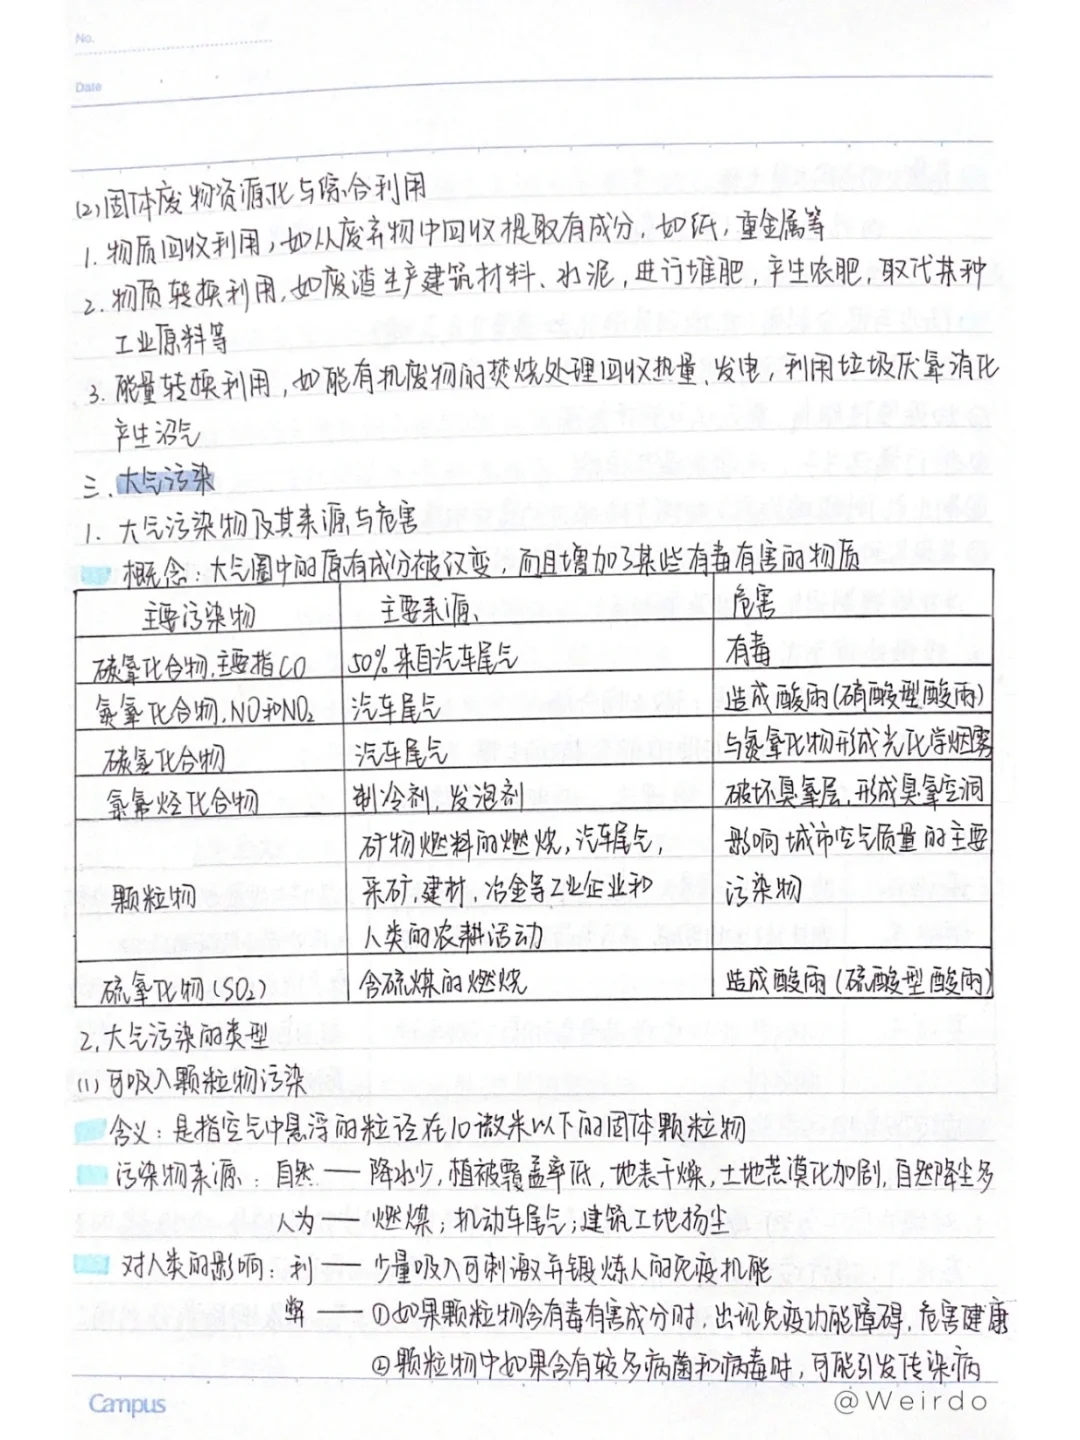 No.
Date
(2)固体废物资源化与综合利用
1. 物质回收利用,如从废弃物中回收提取有成分,如纸,重金属等
2. 物质转换利用,如废渣生产建筑材料、水泥,进行堆肥,产生农肥,取代某种
工业原料等
3. 能量转换利用,如能有机废物的焚烧处理回收热量、发电,利用垃圾厌氧消化
产生沼气
三.大气污染
1. 大气污染物及其来源与危害
概念:大气圈中的原有成分被改变,而且增加了某些有毒有害的物质
主要污染物 主要来源 危害
碳氧化合物,主要指CO 50%来自汽车尾气 有毒
氮氧化合物,NO和NO₂ 汽车尾气 造成酸雨(硝酸型酸雨)
碳氢化合物 汽车尾气 与氮氧化物形成光化学烟雾
氯氟烃化合物 制冷剂,发泡剂 破坏臭氧层,形成臭氧空洞
矿物燃料的燃烧,汽车尾气, 影响城市空气质量的主要
颗粒物 采矿,建材,冶金等工业企业和 污染物
人类的农耕活动
硫氧化物(SO₂) 含硫煤的燃烧 造成酸雨(硫酸型酸雨)
2.大气污染的类型
(1)可吸入颗粒物污染
含义:是指空气中悬浮的粒径在10微米以下的固体颗粒物
污染物来源:自然——降水少,植被覆盖率低,地表干燥,土地荒漠化加剧,自然降尘多
人为——燃煤;机动车尾气;建筑工地扬尘
对人类的影响:利——少量吸入可刺激并锻炼人的免疫机能
弊——①如果颗粒物含有毒有害成分时,出现免疫功能障碍,危害健康
②颗粒物中如果含有较多病菌和病毒时,可能引发传染病
Campus
@Weirdo